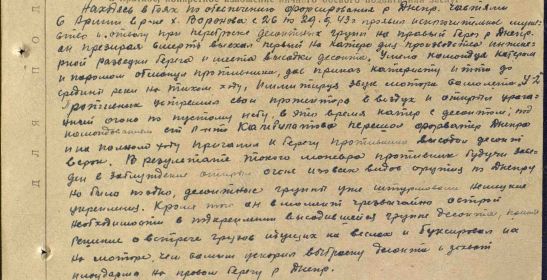 Находясь в боях по обеспечению форсирования р. Днепр частями
6 Армии в р-не х. Воронова с 26 по 29.9.43г проявил исключительное муже-
ство и отвагу при переброске десантных групп на правый берег р Днепр.
он презирая смерть выехал первый на катере для производства инжене-
рной разведки берега и места высадки десанта. Умело командуя катером
и паромом обманул противника, дав приказ катеристу итти до
средины реки на тихом ходу, имитируя звук мотора самолета У-2
Противник устремил свои прожектора в воздух и открыл урага-
нный огонь по пустому небу. в это время катер с десантом, под
командованием ст л-нта пересек форватер Днепра
и на полном ходу причалил к берегу противника высадил десант
В результате такого маневра противник будучи введен
в заблуждение открыл огонь из всех видов оружия по Днепру
но было поздно, десантные группы уже штурмовали немецкие
укрепления. Кроме того он в момент чрезвычайно острой
необходимости в подкреплении высадившейся группе десанта, принял
решение о встрече грузов идущих на веслах и буксировал их
на моторе, чем самым ускорил выброску десанта и захват
плацдарма на правом берегу р Днепр.